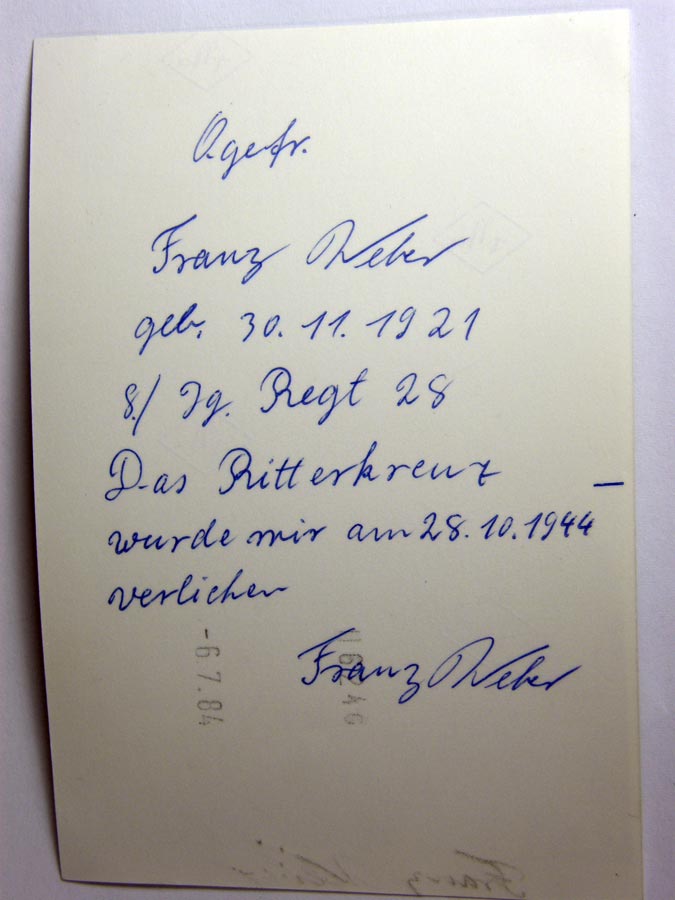 O.gefr.
Franz Weber
geb. 30.11.1921
8./ Jg. Regt 28
Das Ritterkreuz –
wurde mir am 28.10.1944
verliehen
Franz Weber
-6.7.84
Franz